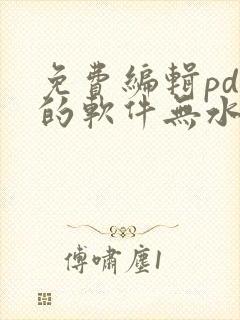 免費編輯pd
的軟件無水
傅嘯塵1